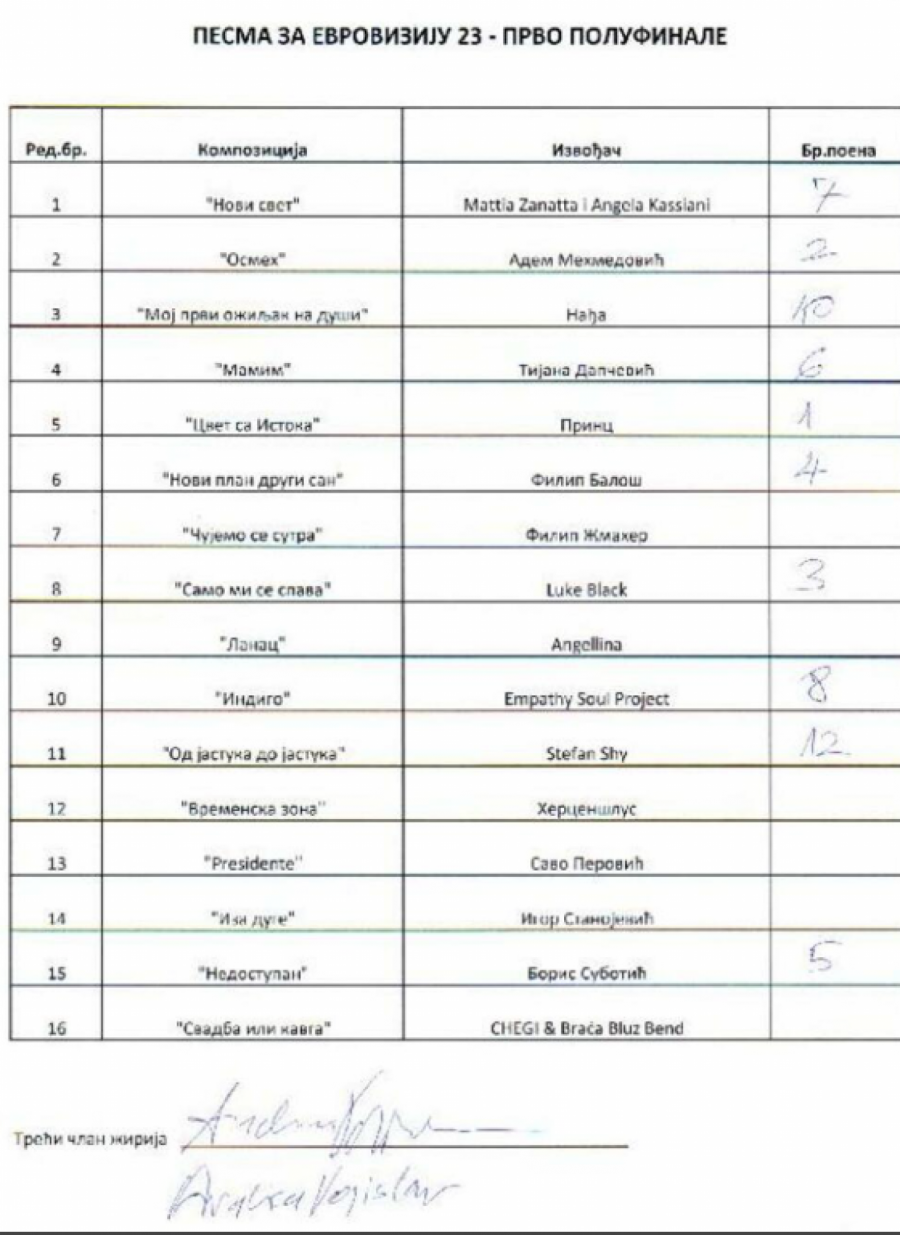 ПЕСМА ЗА ЕВРОВИЗИЈУ 23 - ПРВО ПОЛУФИНАЛЕ
Ред.бр. Композиција Извођач Бр.поена
1 "Нови свет" Mattia Zanatta i Angela Kassiani 7
2 "Осмех" Адем Мехмедовић 2
3 "Мој први ожиљак на души" Нађа 10
4 "Мамим" Тијана Дапчевић 6
5 "Цвет са Истока" Принц 1
6 "Нови план други сан" Филип Балош 4
7 "Чујемо се сутра" Филип Жмахер
8 "Само ми се спава" Luke Black 3
9 "Ланац" Angellina
10 "Индиго" Empathy Soul Project 8
11 "Од јастука до јастука" Stefan Shy 12
12 "Временска зона" Херценшлус
13 "Presidente" Саво Перовић
14 "Иза дуге" Игор Станојевић
15 "Недоступан" Борис Суботић 5
16 "Свадба или кавга" CHEGI & Braća Bluz Bend
Трећи члан жирија
Vojislav